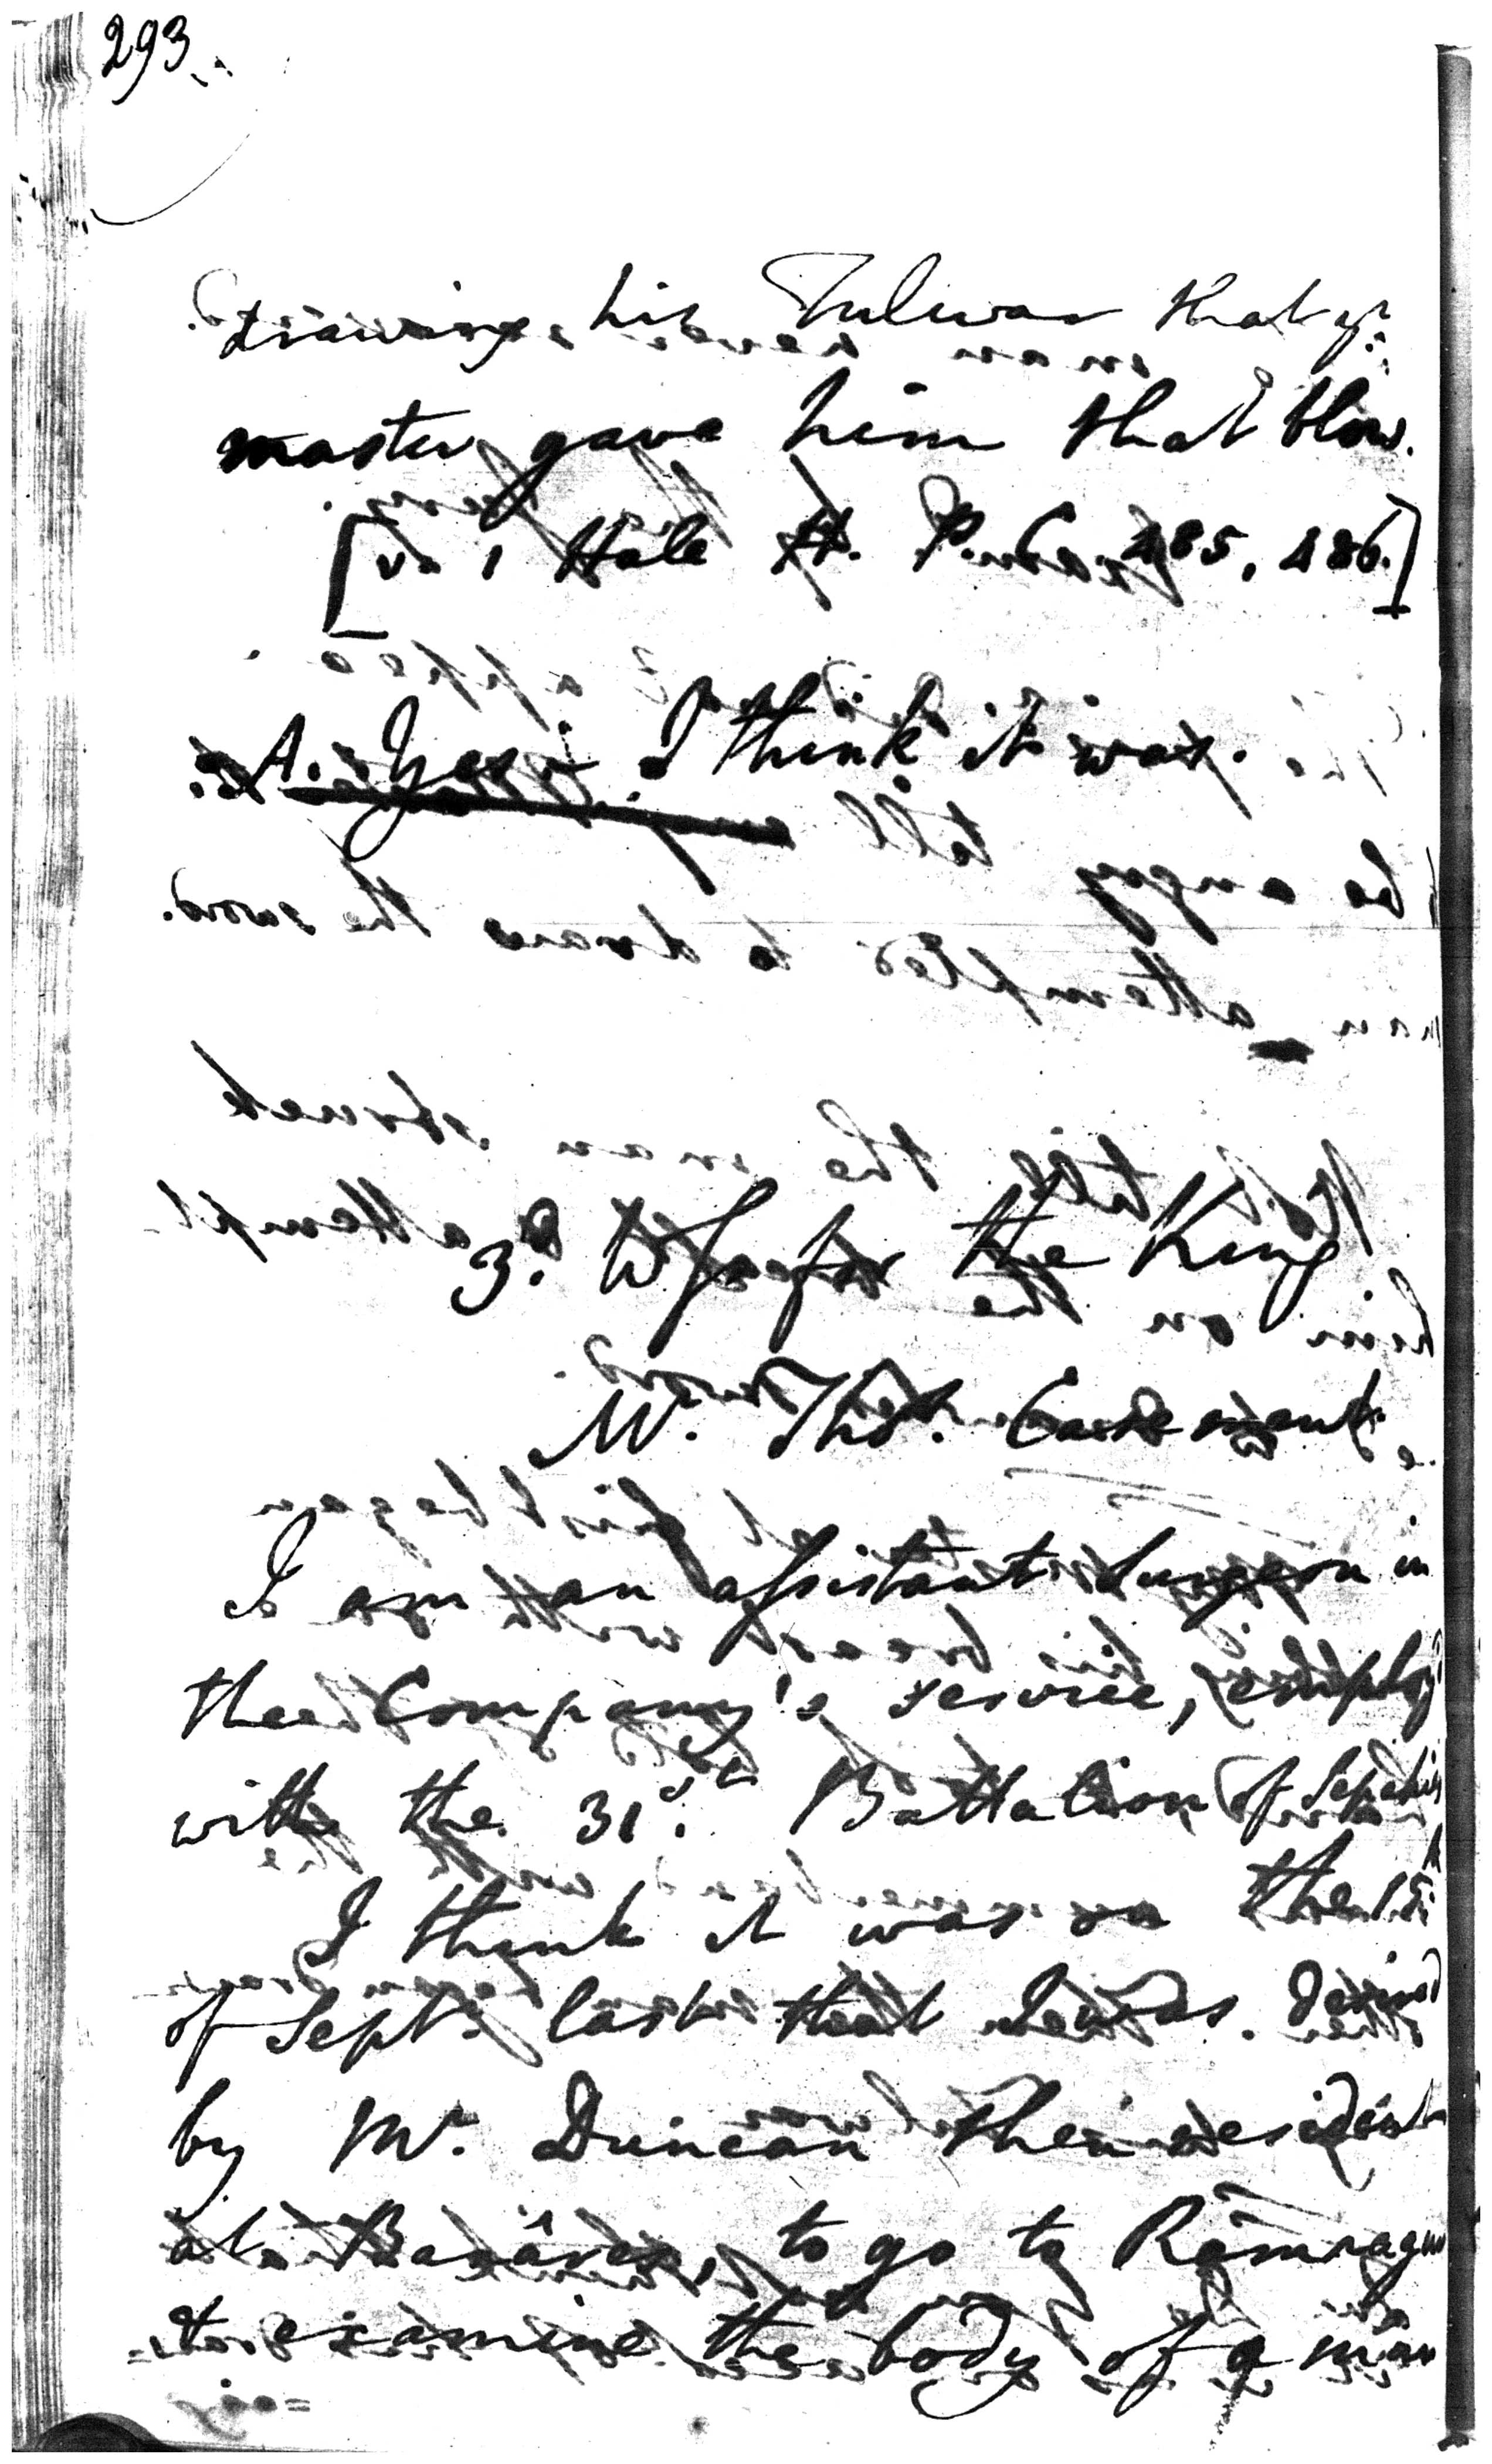 293.
drawing his Tulwar that yr.
master gave him that blow.
[v. 1 Hale H. P. C 485, 486.]
A. Yes; I think it was.
3.d Ws. for the King
Mr. Thos. Casement.
I am an assistant Surgeon in
the Company's service, employd
with the 31st. Battalion of Sepahis
I think it was on the 15th
of Sept. last that I was desired
by Mr. Duncan then resident
at Banâres, to go to Râmnagur
to examine the body of a man